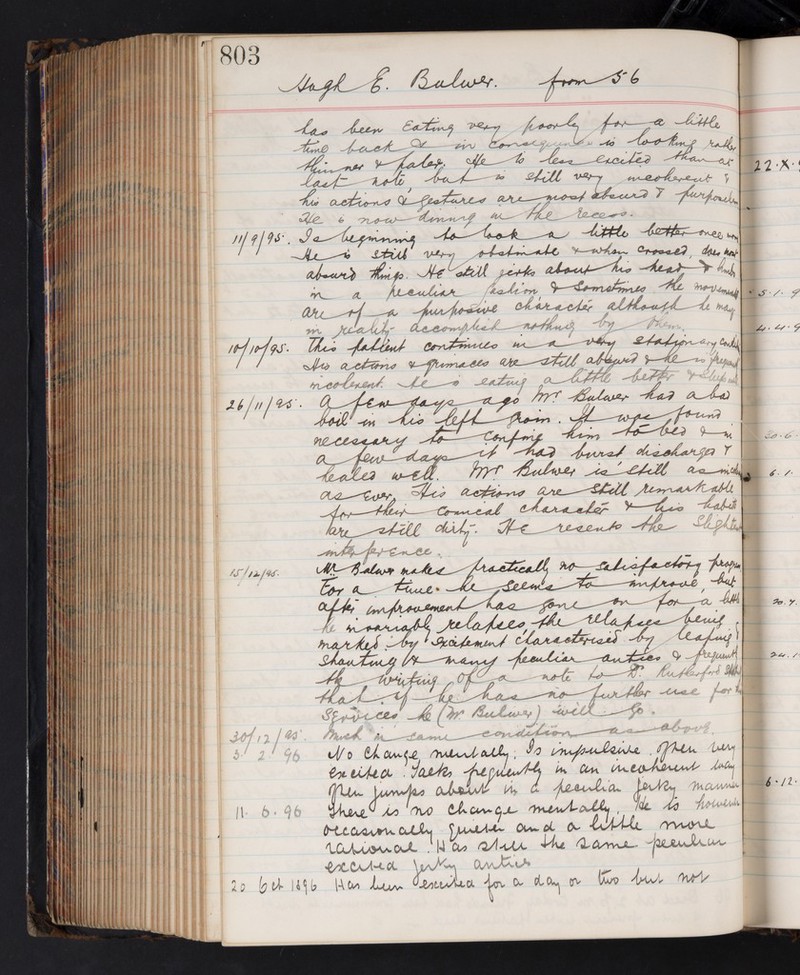 803
Hugh E. Bulwer. from 56
has been eating very poorly for a little
time back & in consequence is looking rather
thinner & paler. He is less excited than at
last note, but is still very incoherent &
his actions & gestures are most absurd &
He is now dining in the recess.
11/9/95. Is beginning to look a little better once
He is still very obstinate & when crossed, does most
absurd things. He still jerks about his head &
in a peculiar fashion & sometimes the movements
are of a purposive character although he may
in reality accomplish nothing by them.
10/10/95. This patient continues in a very stationary
His actions & grimaces are still absurd & he is
incoherent. He is eating a little better & sleeps
26/11/95. A few days ago Mr Bulwer had a bad
boil in his left groin. It was found
necessary to confine him to bed & in
a few days it had burst discharged &
healed well. Mr Bulwer is still as
as ever. His actions are still remarkable
for their comical character & his habits
are still dirty. He resents the slightest
interference.
15/12/95. Mr. Bulwer makes practically no satisfactory
For a time he seems to improve, but
after improvement has gone on for a little
he invariably relapses, the relapses being
marked by excitement characterised by leaping &
shouting & many peculiar antics & frequent
the writing of a note to Dr. Rutherford
that if he has no further use for
services he (Mr Bulwer) will go.
30/12/95. Much in same condition as above.
5 2 96 No change mentally. Is impulsive often very
excited. Talks frequently in an incoherent way
often jumps about in a peculiar jerky manner
11. 6. 96 There is no change mentally. He is however
occasionally quieter and a little more
rational. Has still the same peculiar
excited jerky antics
20 Oct 1896 Has been excited for a day or two but not
22. X.
5. 1. 9
4. 4. 9
20. 6.
6. 1.
6. 12.